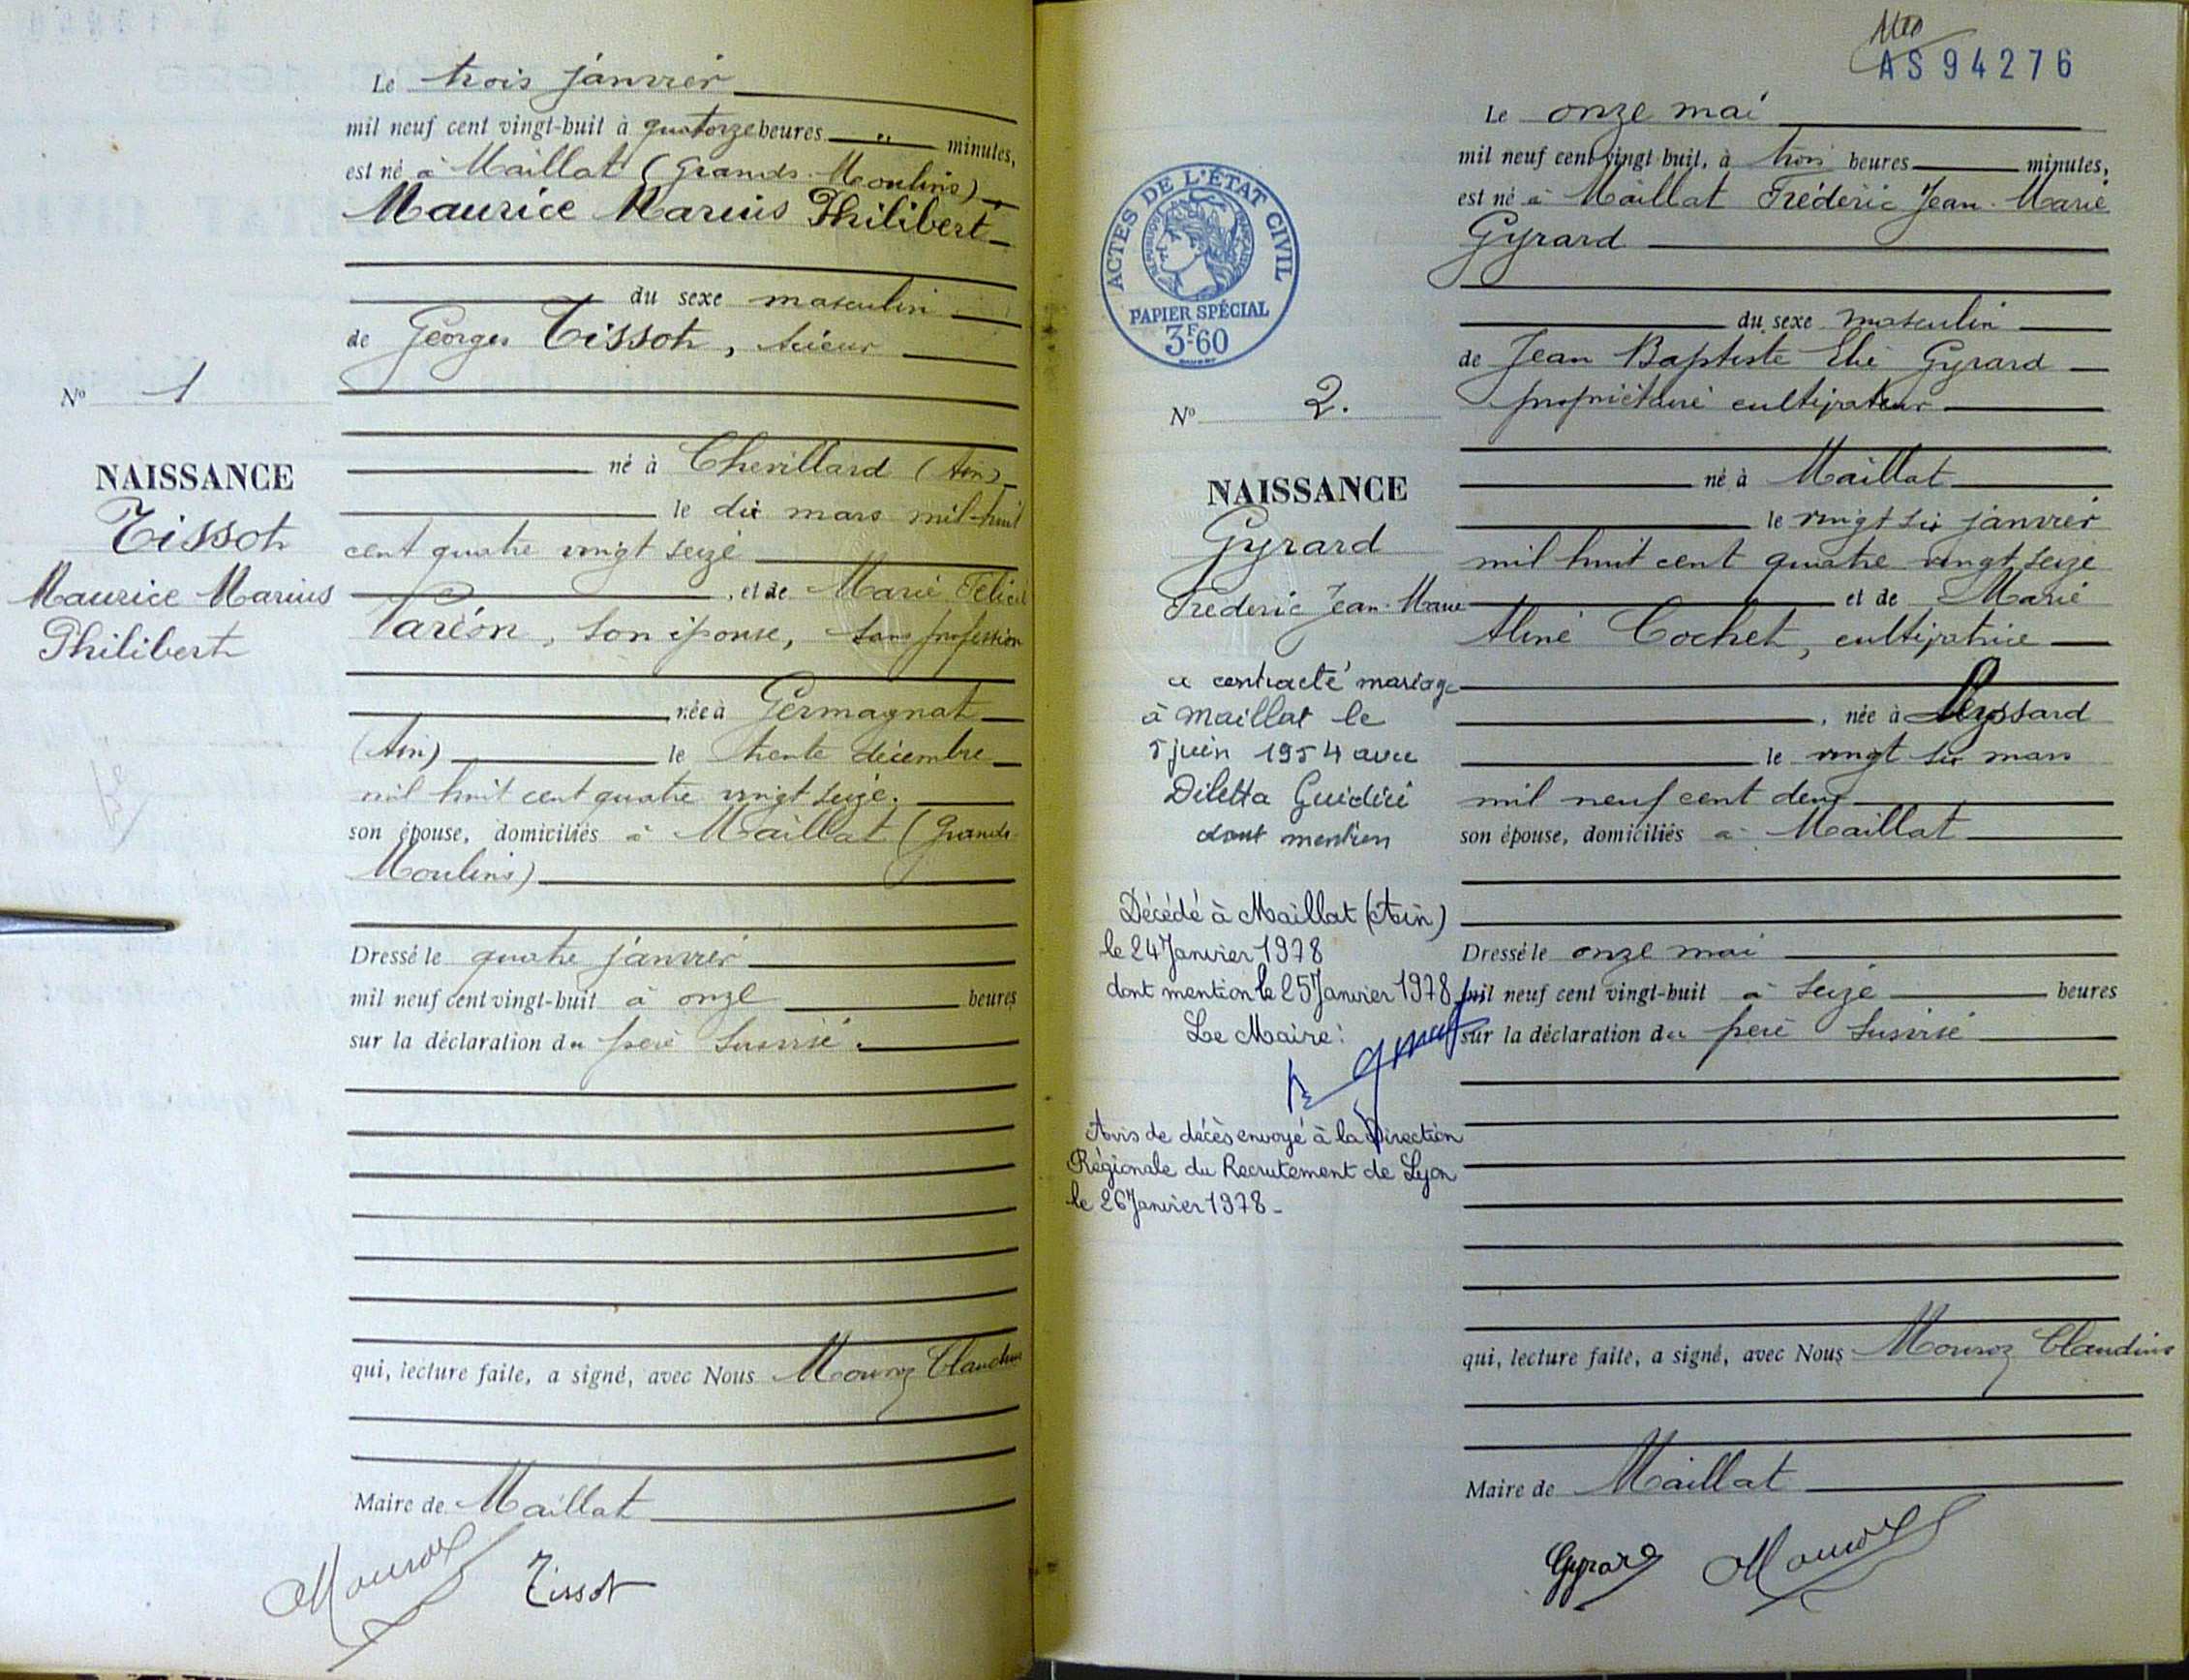 Le trois janvier
mil neuf cent vingt-huit à quatorze heures " minutes,
est né à Maillat (Grands-Moulins)
Maurice Marius Philibert
du sexe masculin
de Georges Tissot, scieur
N° 1
né à Chevillard (Ain)
NAISSANCE
le dix mars mil huit
Tissot
cent quatre vingt seize
Maurice Marius
, et de Marie
Philibert
son épouse, sans profession
, née à Germagnat
(Ain) le trente décembre
mil huit cent quatre vingt seize.
son épouse, domiciliés à Maillat (Grands-
Moulins)
Dressé le quatre janvier
mil neuf cent vingt-huit à onze heures
sur la déclaration du père susvisé.
qui, lecture faite, a signé, avec Nous Mouroz
Maire de Maillat
Tissot
AS94276
Le onze mai
mil neuf cent vingt-huit, à trois heures minutes,
est né à Maillat Frédéric Jean-Marie
Gyrard
ACTES DE L'ÉTAT CIVIL
RÉPUBLIQUE FRANÇAISE
PAPIER SPÉCIAL
3F.60
du sexe masculin
de Jean Baptiste Elie Gyrard
propriétaire cultivateur
N° 2.
né à Maillat
NAISSANCE
Gyrard
Frédéric Jean-Marie
le vingt six janvier
mil huit cent quatre vingt seize
et de Marie
Aline Cochet, cultivatrice
, née à Leyssard
le vingt six mars
mil neuf cent deux
son épouse, domiciliés à Maillat
a contracté mariage
à Maillat le
5 juin 1954 avec
Diletta Guidici
dont mention
Décédé à Maillat (Ain)
le 24 Janvier 1978
dont mention le 25 Janvier 1978
Le Maire:
Avis de décès envoyé à la Direction
Régionale du Recrutement de Lyon
le 26 Janvier 1978-
Dressé le onze mai
mil neuf cent vingt-huit à seize heures
sur la déclaration du père susvisé
qui, lecture faite, a signé, avec Nous Mouroz Claudius
Maire de Maillat
Gyrard Mouroz